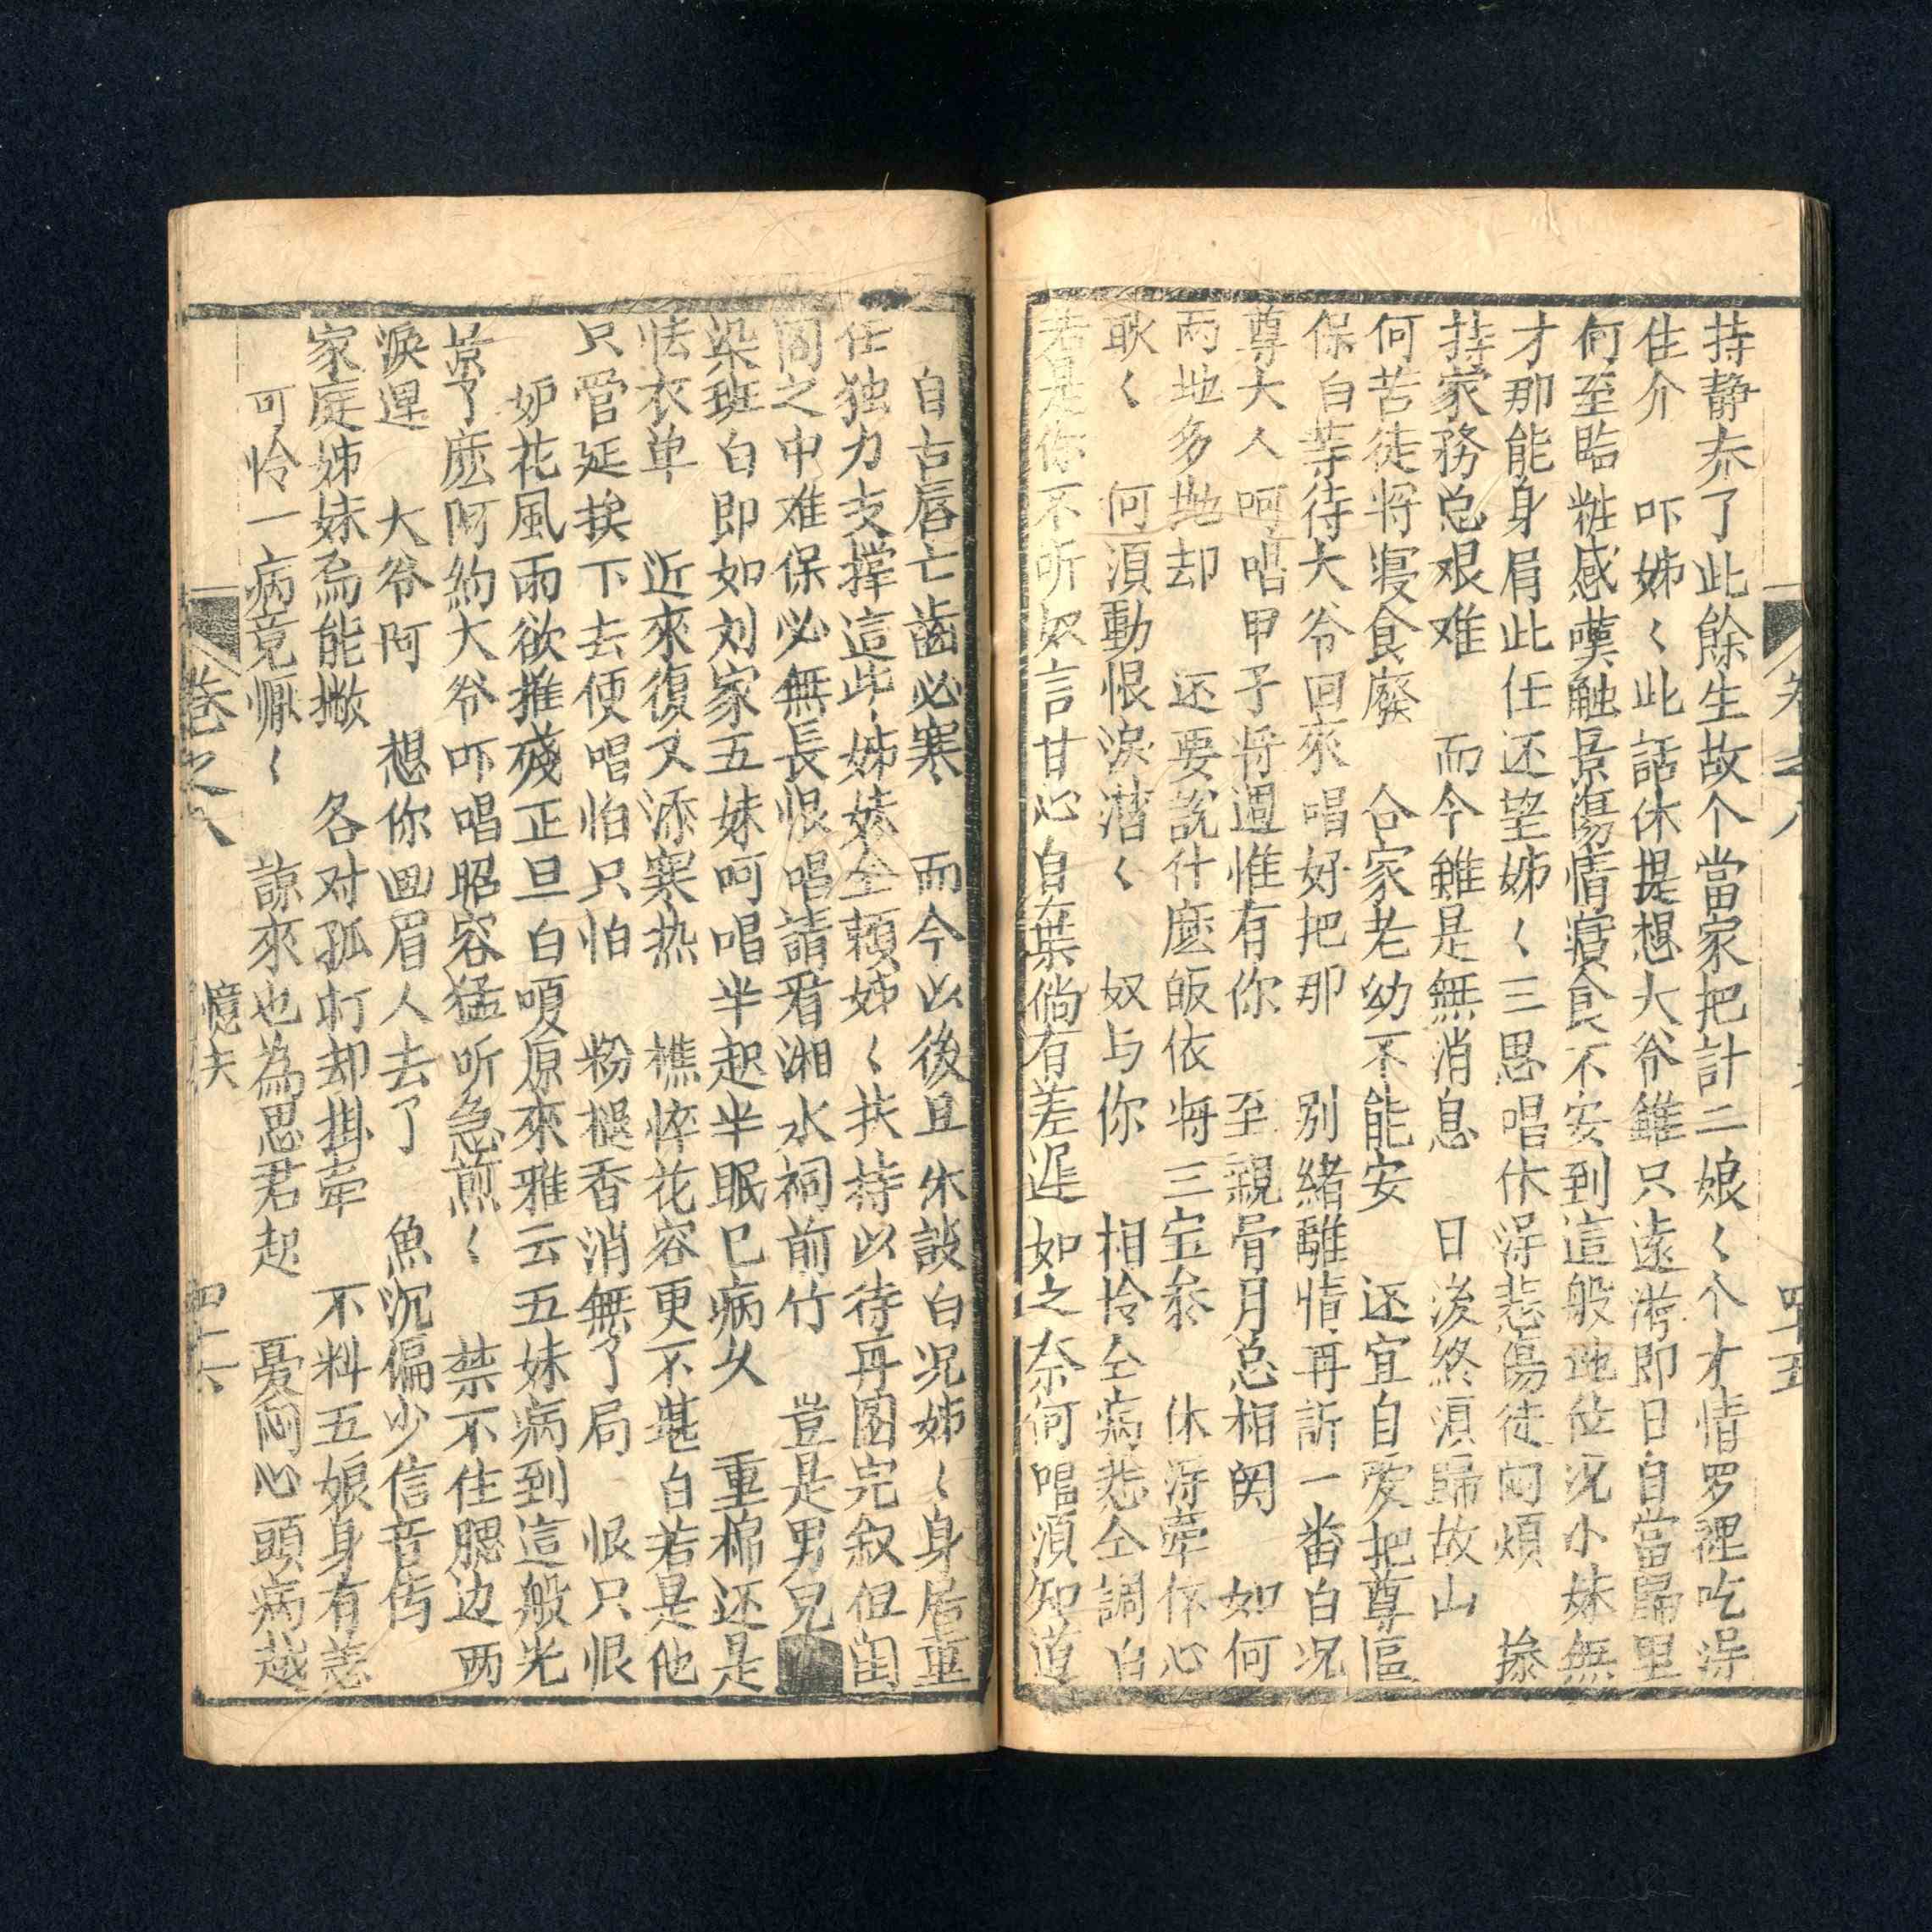 持静养了此餘生故个當家把計二娘〱个才情罗裡吃淂
住介　吓姊〱此話休提想大爷雖只遠游即日自當歸里
何至臨粧感嘆触景傷情寢食不安到這般地位况小妹無
才那能身肩此任还望姊〱三思唱休淂悲傷徒悶煩　捺
持家務总艰难　而今雖是無消息　日後終湏歸故山
何苦徒将寝食廢　合家老幼不能安　还宜自爱把尊區
保白等待大爷回來唱好把那　別緒離情再訴一番白况
尊大人呵唱甲子将週惟有你　至親骨月总相関　如何
两地多抛却　还要說什麽皈依将三宝叅　休淂牵怀心
耿〱　何湏動恨淚潸〱　奴与你　相怜仝病悲仝調白
若是你不听奴言甘心自棄倘有差遲如之奈何唱湏知道
卷之八
四十五
自古唇亡齒必寒　而今以後且休談白况姊〱身居重
任独力支撑這些姊妹全頼姊〱扶持以待再圖完叙但閨
閣之中难保必無長恨唱請看湘水祠前竹　豈是男兒
染斑白即如刘家五妹呵唱半起半眠已病久　重棉还是
怯衣单　近來復又添寒热　樵悴花容更不堪白若是他
只管延挨下去便唱怕只怕　粉褪香消無了局　恨只恨
妒花風雨欲摧殘正旦白嗄原來雅云五妹病到這般光
景了麽呵約大爷吓唱昭容猛听急煎〱　禁不住腮边两
淚涟　大爷阿　想你画眉人去了　魚沉偏少信音传
家庭姊妹焉能撇　各对孤灯却掛牵　不料五娘身有恙
可怜一病竟懨〱　諒來也為思君起　憂悶心頭病越
卷之八
憶夫
四十六